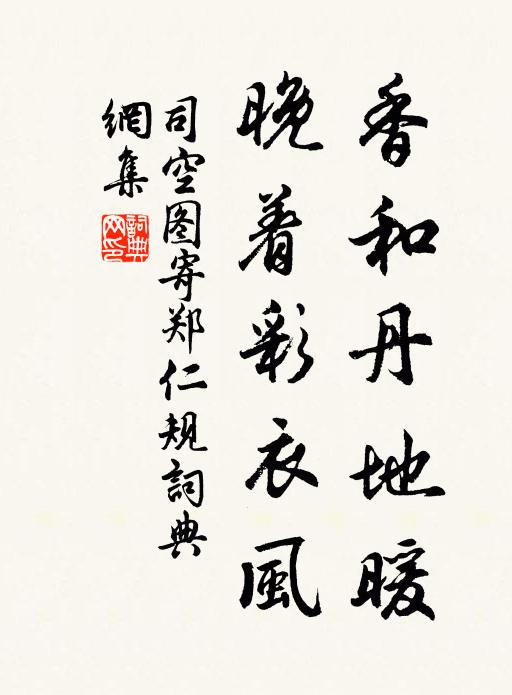 香和丹地暖
晚着彩衣風
司空图寄郑仁规詞典
網集
詞典網印